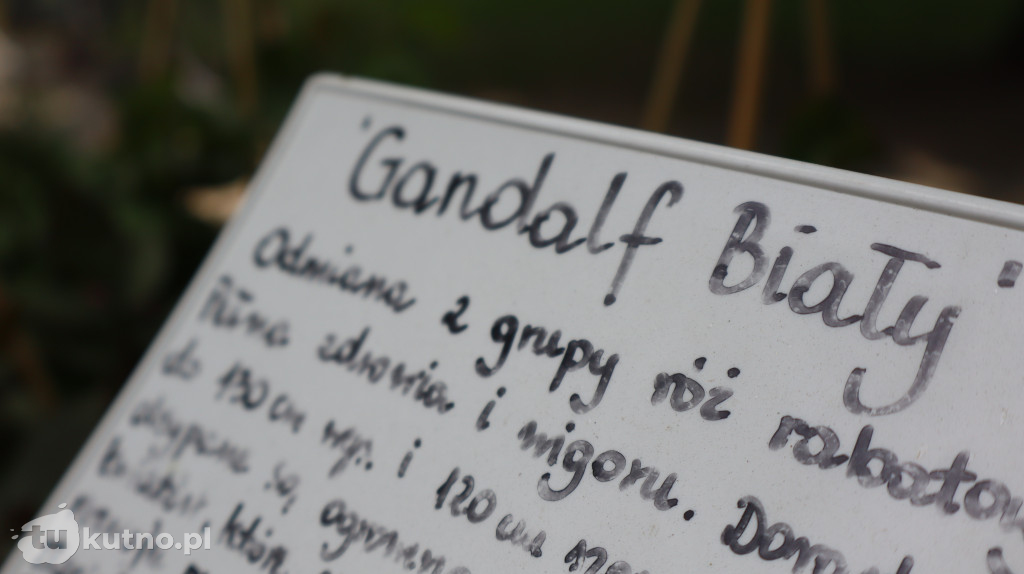 'Gandalf Biały'
Odmiana z grupy róż rabatow
Pełna zdrowia i wigoru. Dora
do 130 cm wys. i 120 cm sze
obsypane są ogromn
kwiatów, któr
tukutno.pl